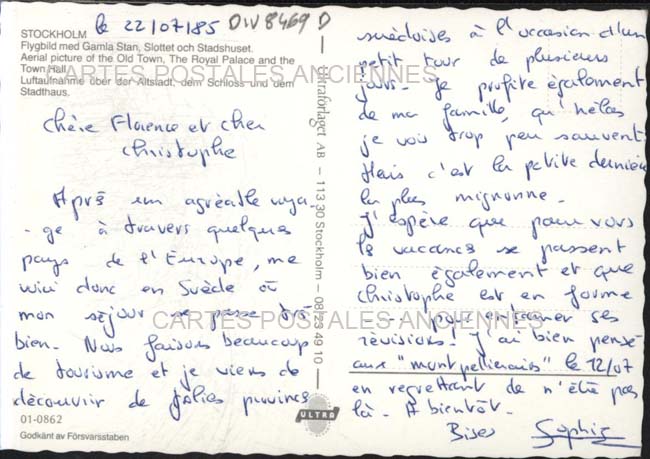 le 22/07/85
DIV8469D
STOCKHOLM
Flygbild med Gamla Stan, Slottet och Stadshuset.
Aerial picture of the Old Town, The Royal Palace and the
Town Hall.
Luftaufnahme über der Altstadt, dem Schloss und dem
Stadthaus.
CARTES POSTALES ANCIENNES
Chère Florence et Cher
Christophe
Après un agréable voya-
-ge à travers quelques
pays de l'Europe, me
voici donc en Suède où
mon séjour se passe très
bien. Nous faisons beaucoup
de tourisme et je viens de
découvrir de jolies provinces
01-0862
Godkänt av Försvarsstaben
Ultraförlaget AB - 113 30 Stockholm - 08/23 49 10
ULTRA
suédoises à l'occasion d'un
petit tour de plusieurs
jours. Je profite également
de ma famille, qu'hélas
je vois trop peu souvent
Mais c'est la petite dernière
la plus mignonne.
J'espère que pour vous
les vacances se passent
bien également et que
Christophe est en forme
CARTES POSTALES ANCIENNES
pour entamer ses
révisions! J'ai bien pensé
aux "montpellierais" le 12/07
en regrettant de n'être pas
là. A bientôt.
Bises Sophie